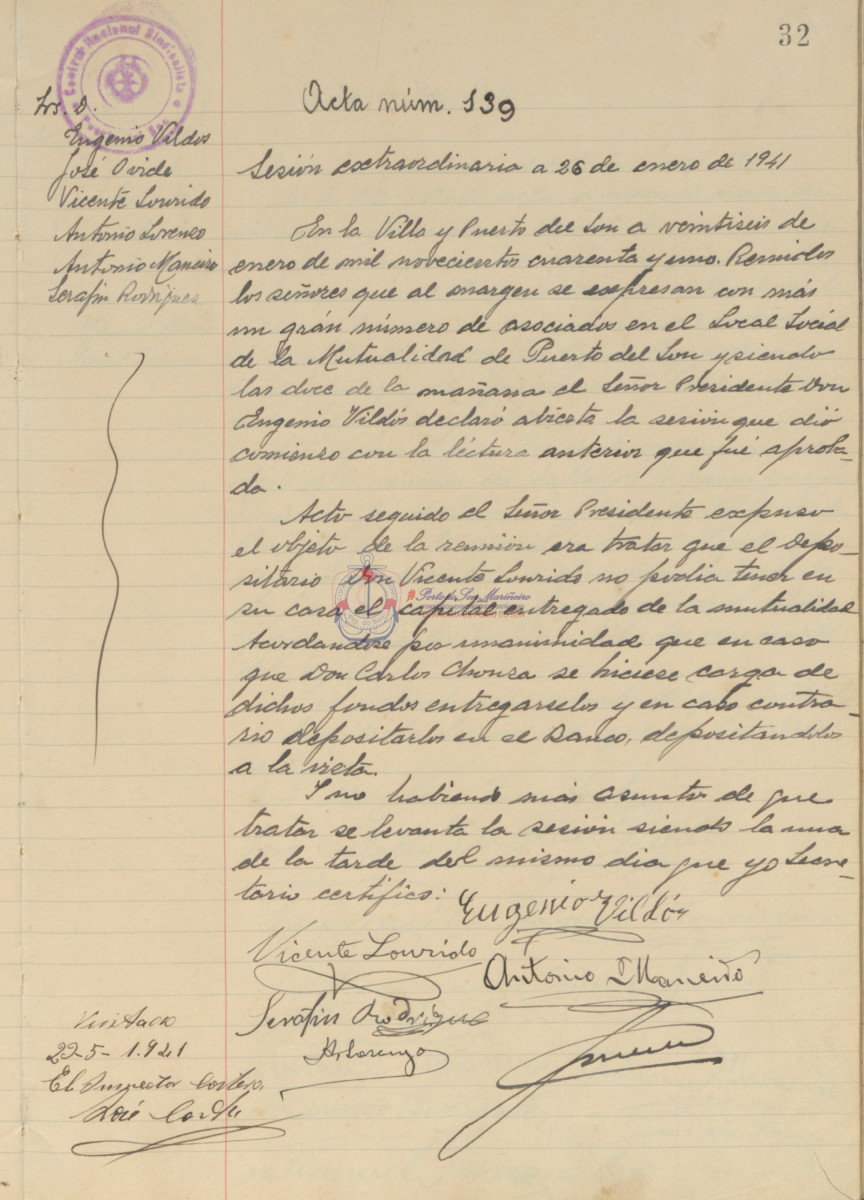 32
Central Nacional Sindicalista
Acta núm. 139
Srs. D.
Eugenio Vildos
José Ovide
Vicente Lourido
Antonio Lorenzo
Antonio Maneiro
Serafin Rodrigues
Sesión extraordinaria a 26 de enero de 1941
En la Villa y Puerto del Son a veintiseis de
enero de mil novecientos cuarenta y uno. Reunidos
los señores que al margen se expresan con más
un grán número de asociados en el Local Social
de la Mutualidad de Puerto del Son y siendo
las doce de la mañana el Señor Presidente Don
Eugenio Vildós declaró abierta la sesión que dió
comienzo con la léctura anterior que fué aproba-
da.
Acto seguido el Señor Presidente expuso
el objeto de la reunión era tratar que el Depo-
sitario Don Vicente Lourido no podia tener en
su casa el capital entregado de la mutualidad
Acordandose por unanimidad que en caso
que Don Carlos Chouza se hiciese carga de
dichos fondos entregarselos y en caso contra-
rio depositarlos en el Banco, depositandolos
a la vista.
Y no habiendo más asunto de que
tratar se levanta la sesión siendo la una
de la tarde del mismo dia que yo Secre-
tario certifico:
Eugenio Vildós
Vicente Lourido
Antonio Maneiro
Serafin Rodríguez
A. Lorenzo
Porto do Son Mariñeiro
Visitado
29-5-1.941
El Inspector Costero,
José